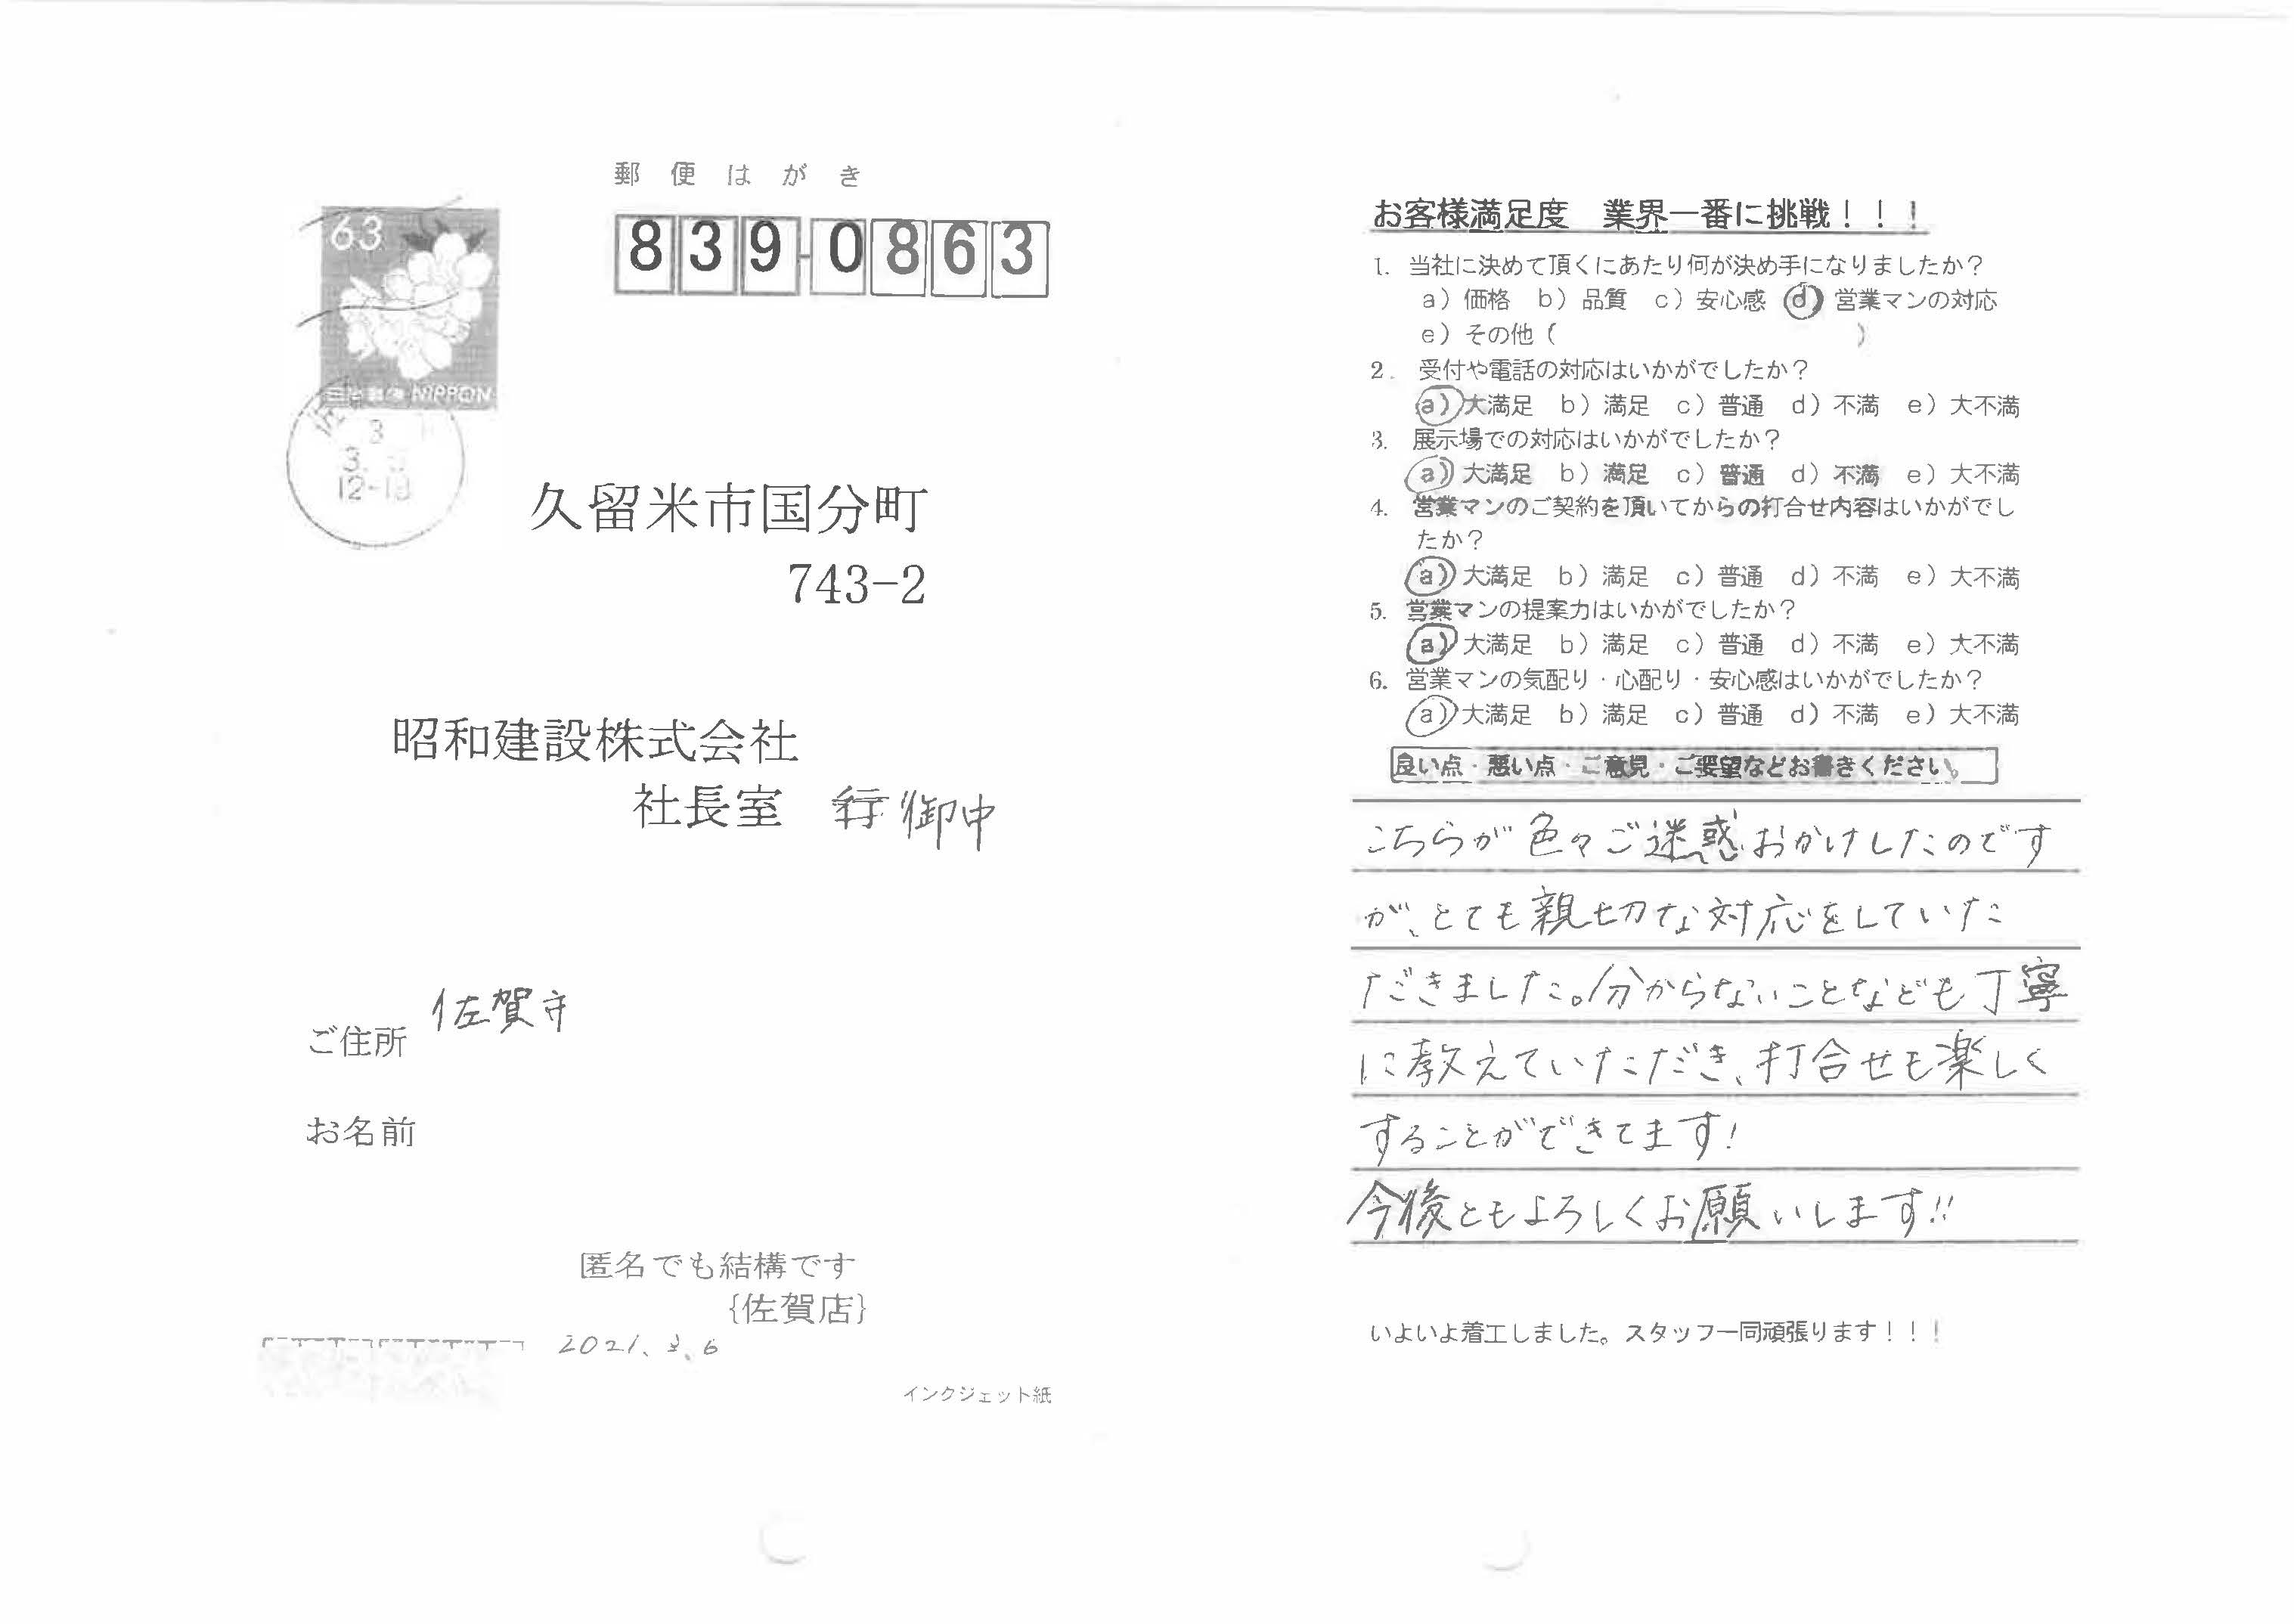 郵便はがき
63
日本郵便 NIPPON
3
3.
12-18
839-0863
久留米市国分町
743-2
昭和建設株式会社
社長室 行 御中
ご住所 佐賀市
お名前
匿名でも結構です
{佐賀店}
2021.3.6
インクジェット紙
お客様満足度 業界一番に挑戦！！！
1. 当社に決めて頂くにあたり何が決め手になりましたか？
a）価格 b）品質 c）安心感 d）営業マンの対応
e）その他（ ）
2. 受付や電話の対応はいかがでしたか？
a）大満足 b）満足 c）普通 d）不満 e）大不満
3. 展示場での対応はいかがでしたか？
a）大満足 b）満足 c）普通 d）不満 e）大不満
4. 営業マンのご契約を頂いてからの打合せ内容はいかがでし
たか？
a）大満足 b）満足 c）普通 d）不満 e）大不満
5. 営業マンの提案力はいかがでしたか？
a）大満足 b）満足 c）普通 d）不満 e）大不満
6. 営業マンの気配り・心配り・安心感はいかがでしたか？
a）大満足 b）満足 c）普通 d）不満 e）大不満
良い点・悪い点・ご意見・ご要望などお書きください。
こちらが色々ご迷惑おかけしたのです
が、とても親切な対応をしていた
だきました。分からないことなども丁寧
に教えていただき、打合せも楽しく
することができてます！
今後ともよろしくお願いします!!
いよいよ着工しました。スタッフ一同頑張ります！！！